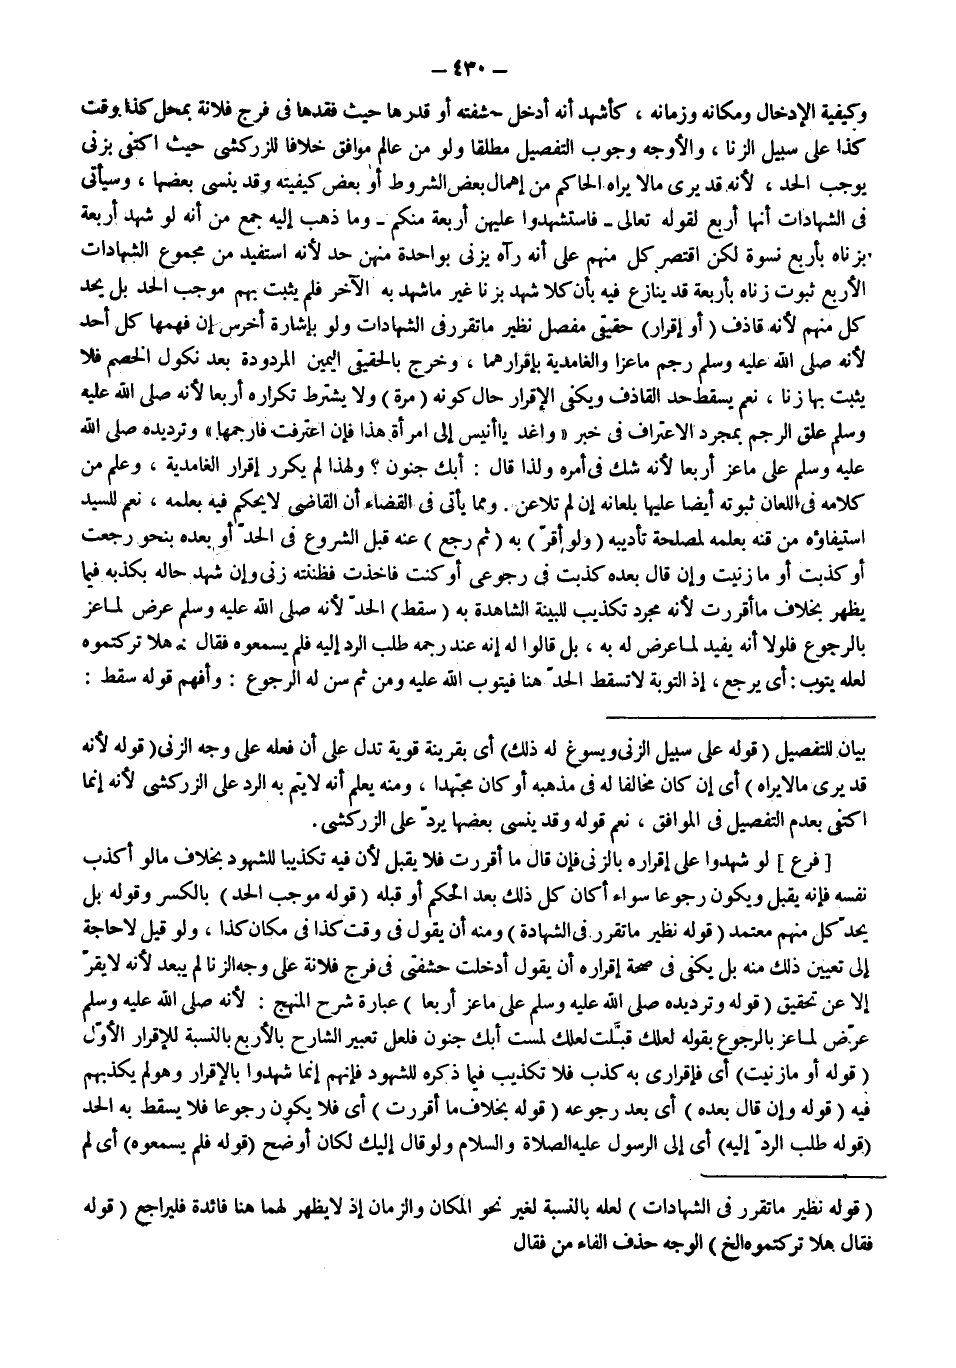 – ٤٣٠ –
وكيفية الإدخال ومكانه وزمانه ، كأشهد أنه أدخل حشفته أو قدرها حيث فقدها فى فرج فلانة بمحل كذا وقت
كذا على سبيل الزنا ، والأوجه وجوب التفصيل مطلقا ولو من عالم موافق خلافا للزركشى حيث اكتفى بزنى
يوجب الحد ، لأنه قد يرى مالا يراه الحاكم من إهمال بعض الشروط أو بعض كيفيته وقد ينسى بعضها ، وسيأتى
فى الشهادات أنها أربع لقوله تعالى ـ فاستشهدوا عليهن أربعة منكم ـ وما ذهب إليه جمع من أنه لو شهد أربعة
بزناه بأربع نسوة لكن اقتصر كل منهم على أنه رآه يزنى بواحدة منهن حد لأنه استفيد من مجموع الشهادات
الأربع ثبوت زناه بأربعة قد ينازع فيه بأن كلا شهد بزنا غير ماشهد به الآخر فلم يثبت بهم موجب الحد بل يحد
كل منهم لأنه قاذف ( أو إقرار) حقيقى مفصل نظير ماتقرر فى الشهادات ولو بإشارة أخرس إن فهمها كل أحد
لأنه صلى الله عليه وسلم رجم ماعزا والغامدية بإقرارهما ، وخرج بالحقيقى اليمين المردودة بعد نكول الخصم فلا
يثبت بها زنا ، نعم يسقط حد القاذف ويكفى الإقرار حال كونه ( مرة ) ولا يشترط تكراره أربعا لأنه صلى الله عليه
وسلم علق الرجم بمجرد الاعتراف فى خبر « واغد ياأنيس إلى امرأة هذا فإن اعترفت فارجمها » وترديده صلى الله
عليه وسلم على ماعز أربعا لأنه شك فى أمره ولذا قال : أبك جنون ؟ ولهذا لم يكرر إقرار الغامدية ، وعلم من
كلامه فى اللعان ثبوته أيضا عليها بلعانه إن لم تلاعن . ومما يأتى فى القضاء أن القاضى لايحكم فيه بعلمه ، نعم للسيد
استيفاؤه من قنه بعلمه لمصلحة تأديبه ( ولو أقرّ ) به ( ثم رجع ) عنه قبل الشروع فى الحدّ أو بعده بنحو رجعت
أو كذبت أو ما زنيت وإن قال بعده كذبت فى رجوعى أو كنت فاخذت فظننته زنى وإن شهد حاله بكذبه فيما
يظهر بخلاف ماأقررت لأنه مجرد تكذيب للبينة الشاهدة به ( سقط ) الحدّ لأنه صلى الله عليه وسلم عرض لماعز
بالرجوع فلولا أنه يفيد لما عرض له به ، بل قالوا له إنه عند رجمه طلب الرد إليه فلم يسمعوه فقال : هلا تركتموه
لعله يتوب : أى يرجع ، إذ التوبة لاتسقط الحدّ هنا فيتوب الله عليه ومن ثم سن له الرجوع : وأفهم قوله سقط :
بيان للتفصيل ( قوله على سبيل الزنى ويسوغ له ذلك ) أى بقرينة قوية تدل على أن فعله على وجه الزنى ( قوله لأنه
قد يرى مالا يراه ) أى إن كان مخالفا له فى مذهبه أو كان مجتهدا ، ومنه يعلم أنه لايتم به الرد على الزركشى لأنه إنما
اكتفى بعدم التفصيل فى الموافق ، نعم قوله وقد ينسى بعضها يردّ على الزركشى .
[ فرع ] لو شهدوا على إقراره بالزنى فإن قال ما أقررت فلا يقبل لأن فيه تكذيبا للشهود بخلاف مالو أكذب
نفسه فإنه يقبل ويكون رجوعا سواء أكان كل ذلك بعد الحكم أو قبله ( قوله موجب الحد ) بالكسر وقوله بل
يحدّ كل منهم معتمد ( قوله نظير ماتقرر فى الشهادة ) ومنه أن يقول فى وقت كذا فى مكان كذا ، ولو قيل لاحاجة
إلى تعيين ذلك منه بل يكفى فى صحة إقراره أن يقول أدخلت حشفتى فى فرج فلانة على وجه الزنا لم يبعد لأنه لايقرّ
إلا عن تحقيق ( قوله وترديده صلى الله عليه وسلم على ماعز أربعا ) عبارة شرح المنهج : لأنه صلى الله عليه وسلم
عرّض لماعز بالرجوع بقوله لعلك قبَّلت لعلك لمست أبك جنون فلعل تعبير الشارح بالأربع بالنسبة للإقرار الأوّل
( قوله أو مازنيت ) أى فإقرارى به كذب فلا تكذيب فيما ذكره للشهود فإنهم إنما شهدوا بالإقرار وهو لم يكذبهم
فيه ( قوله وإن قال بعده ) أى بعد رجوعه ( قوله بخلاف ما أقررت ) أى فلا يكون رجوعا فلا يسقط به الحد
( قوله طلب الردّ إليه ) أى إلى الرسول عليه الصلاة والسلام ولو قال إليك لكان أوضح ( قوله فلم يسمعوه ) أى لم
( قوله نظير ماتقرر فى الشهادات ) لعله بالنسبة لغير نحو المكان والزمان إذ لايظهر لهما هنا فائدة فليراجع ( قوله
فقال هلا تركتموه الخ ) الوجه حذف الفاء من فقال